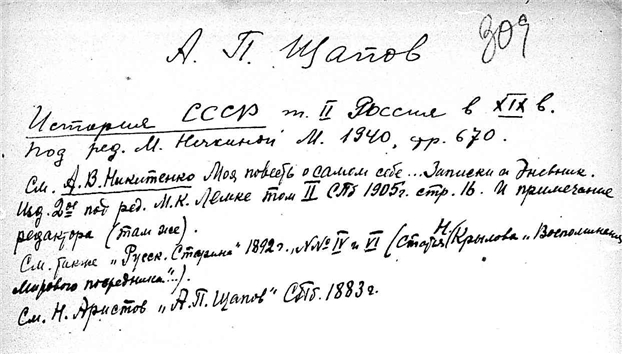 309
А. П. Щапов
История СССР т. II Россия в XIX в.
Под ред. М. Нечкиной М. 1940, стр. 670.
См. А. В. Никитенко Моя повесть о самом себе... Записки и Дневник.
Изд. 2ое под ред. М. К. Лемке том II СПб 1905г. стр. 16. И примечание
редактора (там же).
См. также „Русск. Старина" 1892г., №№ IV и VI (Статья Н. Крылова „Воспоминания
мирового посредника"...).
См. Н. Аристов „А. П. Щапов" СПб. 1883г.